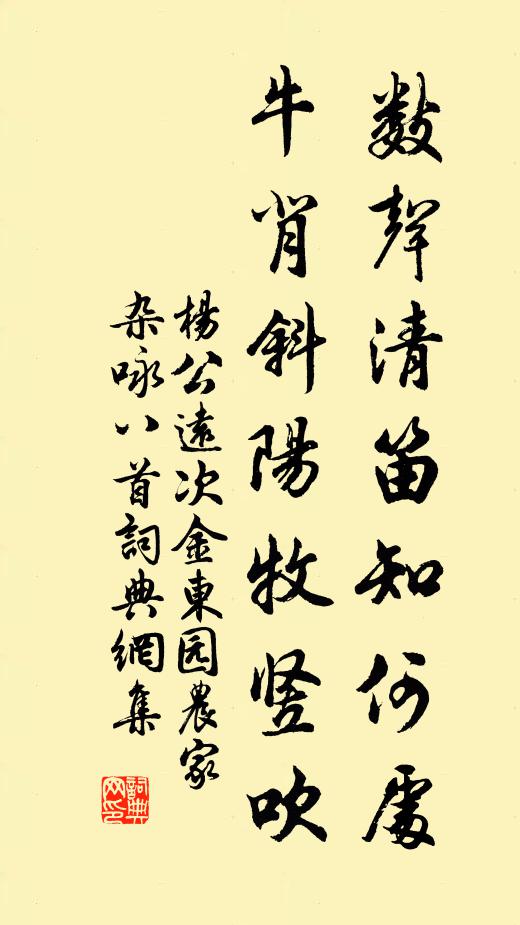 數聲清笛知何處
牛背斜陽牧竖吹
楊公遠次金東园農家
杂咏八首詞典網集
詞典
网印